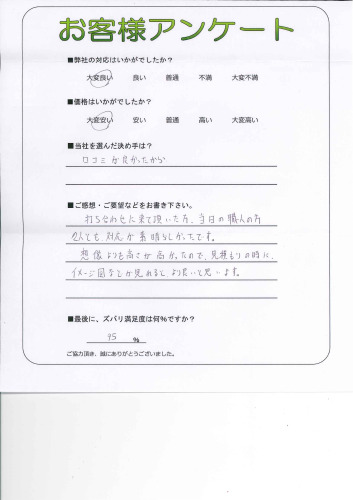 お客様アンケート
■弊社の対応はいかがでしたか？
大変良い 良い 普通 不満 大変不満
■価格はいかがでしたか？
大変安い 安い 普通 高い 大変高い
■当社を選んだ決め手は？
口コミが良かったから
■ご感想・ご要望などをお書き下さい。
打ち合わせに来て頂いた方、当日の職人の方
2人とも対応が素晴らしかったです。
想像よりも高さが高かったので、見積もりの時に、
イメージ図などが見れるとより良いと思います。
■最後に、ズバリ満足度は何％ですか？
95 ％
ご協力頂き、誠にありがとうございました。